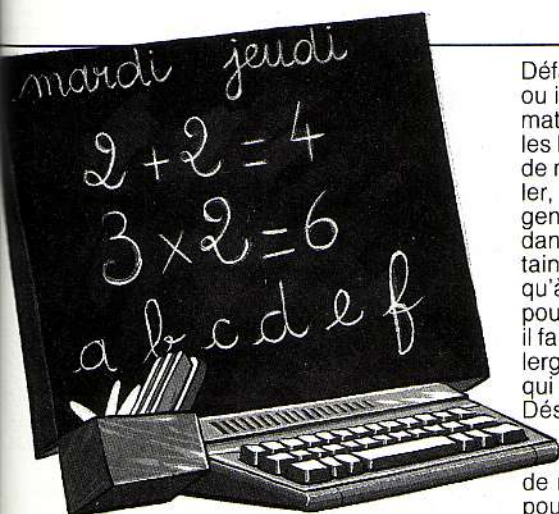 mardi jeudi
2 + 2 = 4
3 x 2 = 6
a b c d e f
Défa
ou i
mat
les
de
ler,
gen
dan
tain
qu'à
pou
il fa
lerg
qui
Dés
de
pou